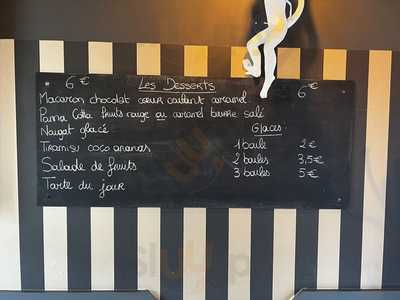 6€ Les Desserts 6€
Macaron chocolat cœur coulant caramel
Panna Cotta fruits rouge ou caramel beurre salé
Nougat glacé Glaces
Tiramisu coco ananas 1 boule 2€
Salade de fruits 2 boules 3,5€
Tarte du jour 3 boules 5€